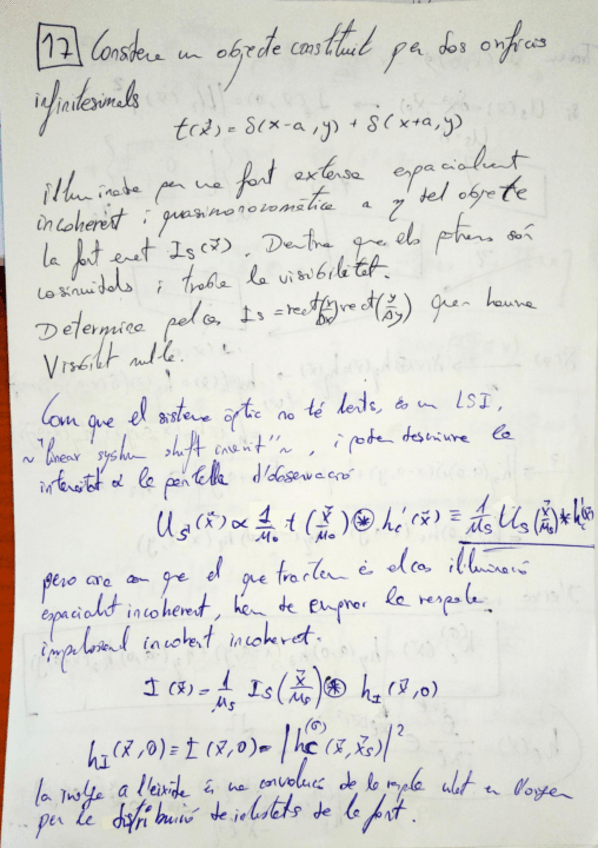 17 Considera un objecte constituït per dos orificis
infinitesimals
t(x⃗) = δ(x-a, y) + δ(x+a, y)
il·luminats per una font extensa espacialment
incoherent i quasimonocromàtica a z del objecte
la font emet I_S(x⃗). Demostra que els patrons són
cosinuidals i troba la visibilitat.
Determina pel cas I_S = rect(x/Δx) rect(y/Δy) quan hi haurà
Visibilitat nul·la.
Com que el sistema òptic no té lents, és un LSI,
~"linear system shift invariant"~, i podem descriure la
intensitat a la pantalla d'observació
U_S'(x⃗) ∝ 1/μ₀ t(x⃗/μ₀) ⊛ h_c'(x⃗) ≡ 1/μ_S U_S(x⃗/μ_S) * h_c'(x⃗)
però ara com que el que tractem és el cas il·luminació
espacialment incoherent, hem de emprar la resposta
impulsional incoherent.
I(x⃗) = 1/μ_S I_S(x⃗/μ_S) ⊛ h_I(x⃗, 0)
h_I(x⃗, 0) ≡ I(x⃗, 0) = |h_C^(σ)(x⃗, x⃗_S)|²
la imatge a l'eixida és una convolució de la en l'origen
per la distribució de intensitats de la font.